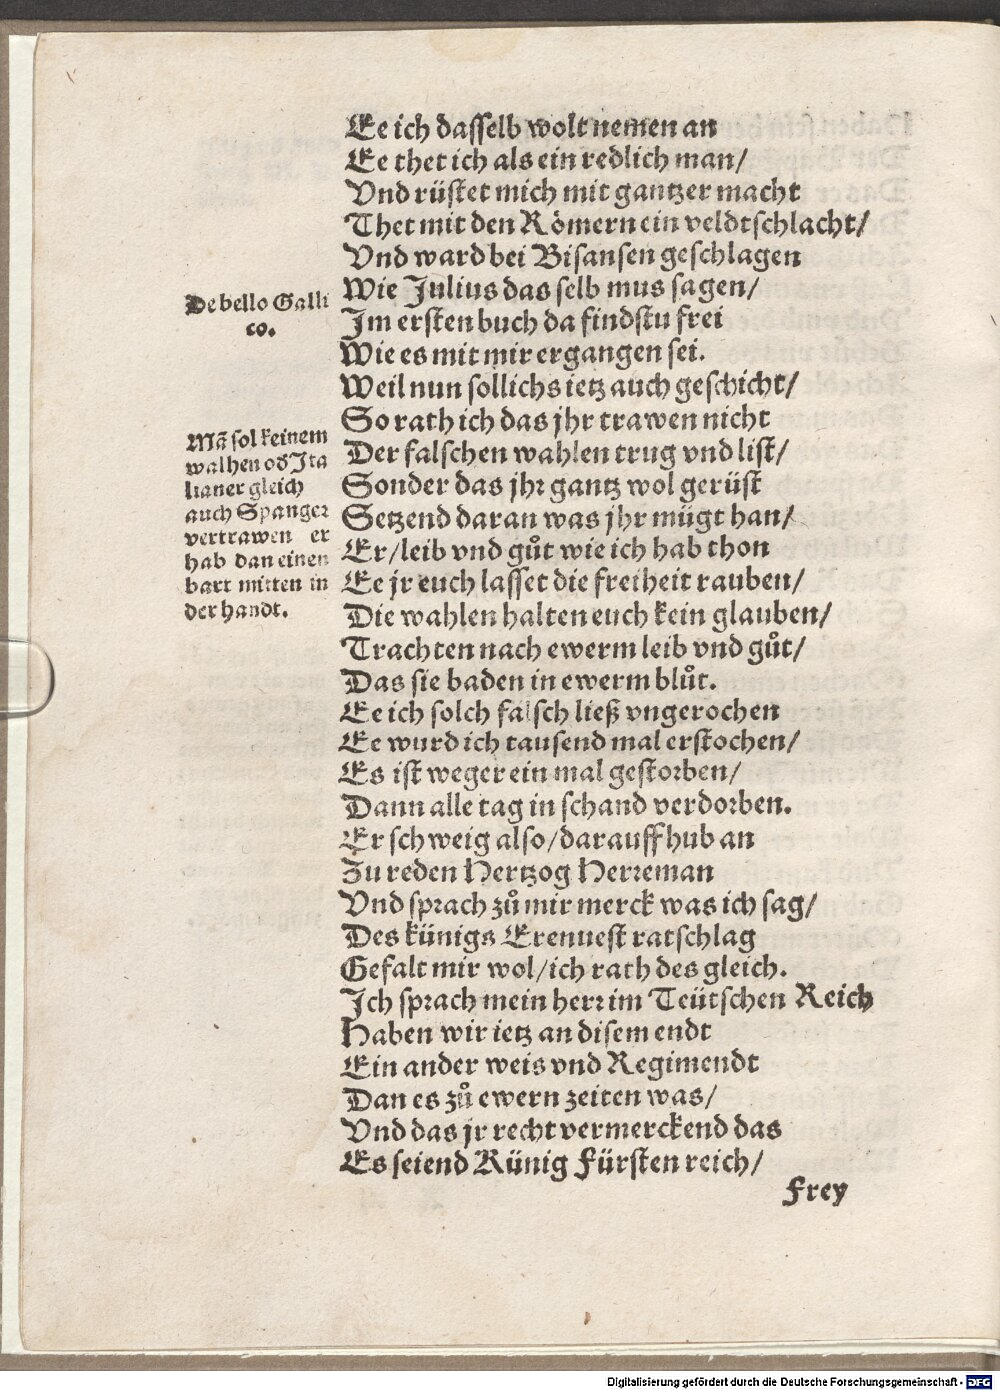 Ee ich dasselb wolt nemen an
Ee thet ich als ein redlich man/
Vnd rüstet mich mit gantzer macht
Thet mit den Römern ein veldtschlacht/
Vnd ward bei Bisansen geschlagen
Wie Julius das selb mus sagen/
Im ersten buch da findstu frei
Wie es mit mir ergangen sei.
Weil nun sollichs ietz auch geschicht/
So rath ich das jhr trawen nicht
Der falschen wahlen trug vnd list/
Sonder das jhr gantz wol gerüst
Setzend daran was jhr mügt han/
Er/leib vnd gůt wie ich hab thon
Ee jr euch lasset die freiheit rauben/
Die wahlen halten euch kein glauben/
Trachten nach ewerm leib vnd gůt/
Das sie baden in ewerm blůt.
Ee ich solch falsch ließ vngerochen
Ee wurd ich tausend mal erstochen/
Es ist weger ein mal gestorben/
Dann alle tag in schand verdorben.
Er schweig also/darauff hub an
Zu reden Hertzog Herreman
Vnd sprach zů mir merck was ich sag/
Des künigs Erenuest ratschlag
Gefalt mir wol/ich rath des gleich.
Ich sprach mein herr im Teütschen Reich
Haben wir ietz an disem endt
Ein ander weis vnd Regimendt
Dan es zů ewern zeiten was/
Vnd das jr recht vermerckend das
Es seiend Künig Fürsten reich/
Frey
De bello Galli
co.
Mā sol keinem
walhen oď Ita
lianer gleich
auch Spanger
vertrawen er
hab dan einen
bart mitten in
der handt.
Digitalisierung gefördert durch die Deutsche Forschungsgemeinschaft - DFG